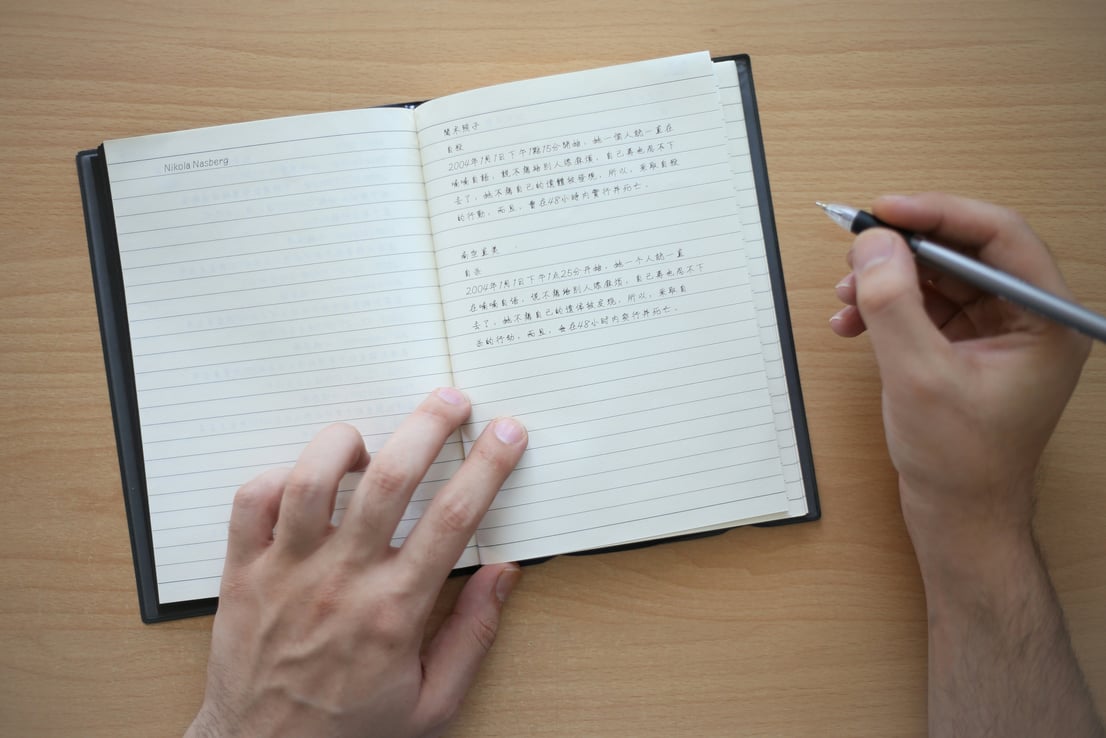 Nikola Nasberg
間木照子
自殺
2004年1月1日下午1點15分開始，她一個人就一直在
喃喃自語，說不想給別人添麻煩，自己再也忍不下
去了，她不想自己的遺體被發現，所以，采取自殺
的行動，而且，會在48小時内實行并死亡。
南空直美
自杀
2004年1月1日下午1点25分开始，她一个人就一直
在喃喃自语，说不想给别人添麻烦，自己再也忍不下
去了，她不想自己的遗体被发现，所以，采取自
杀的行动，而且，会在48小时内实行并死亡。